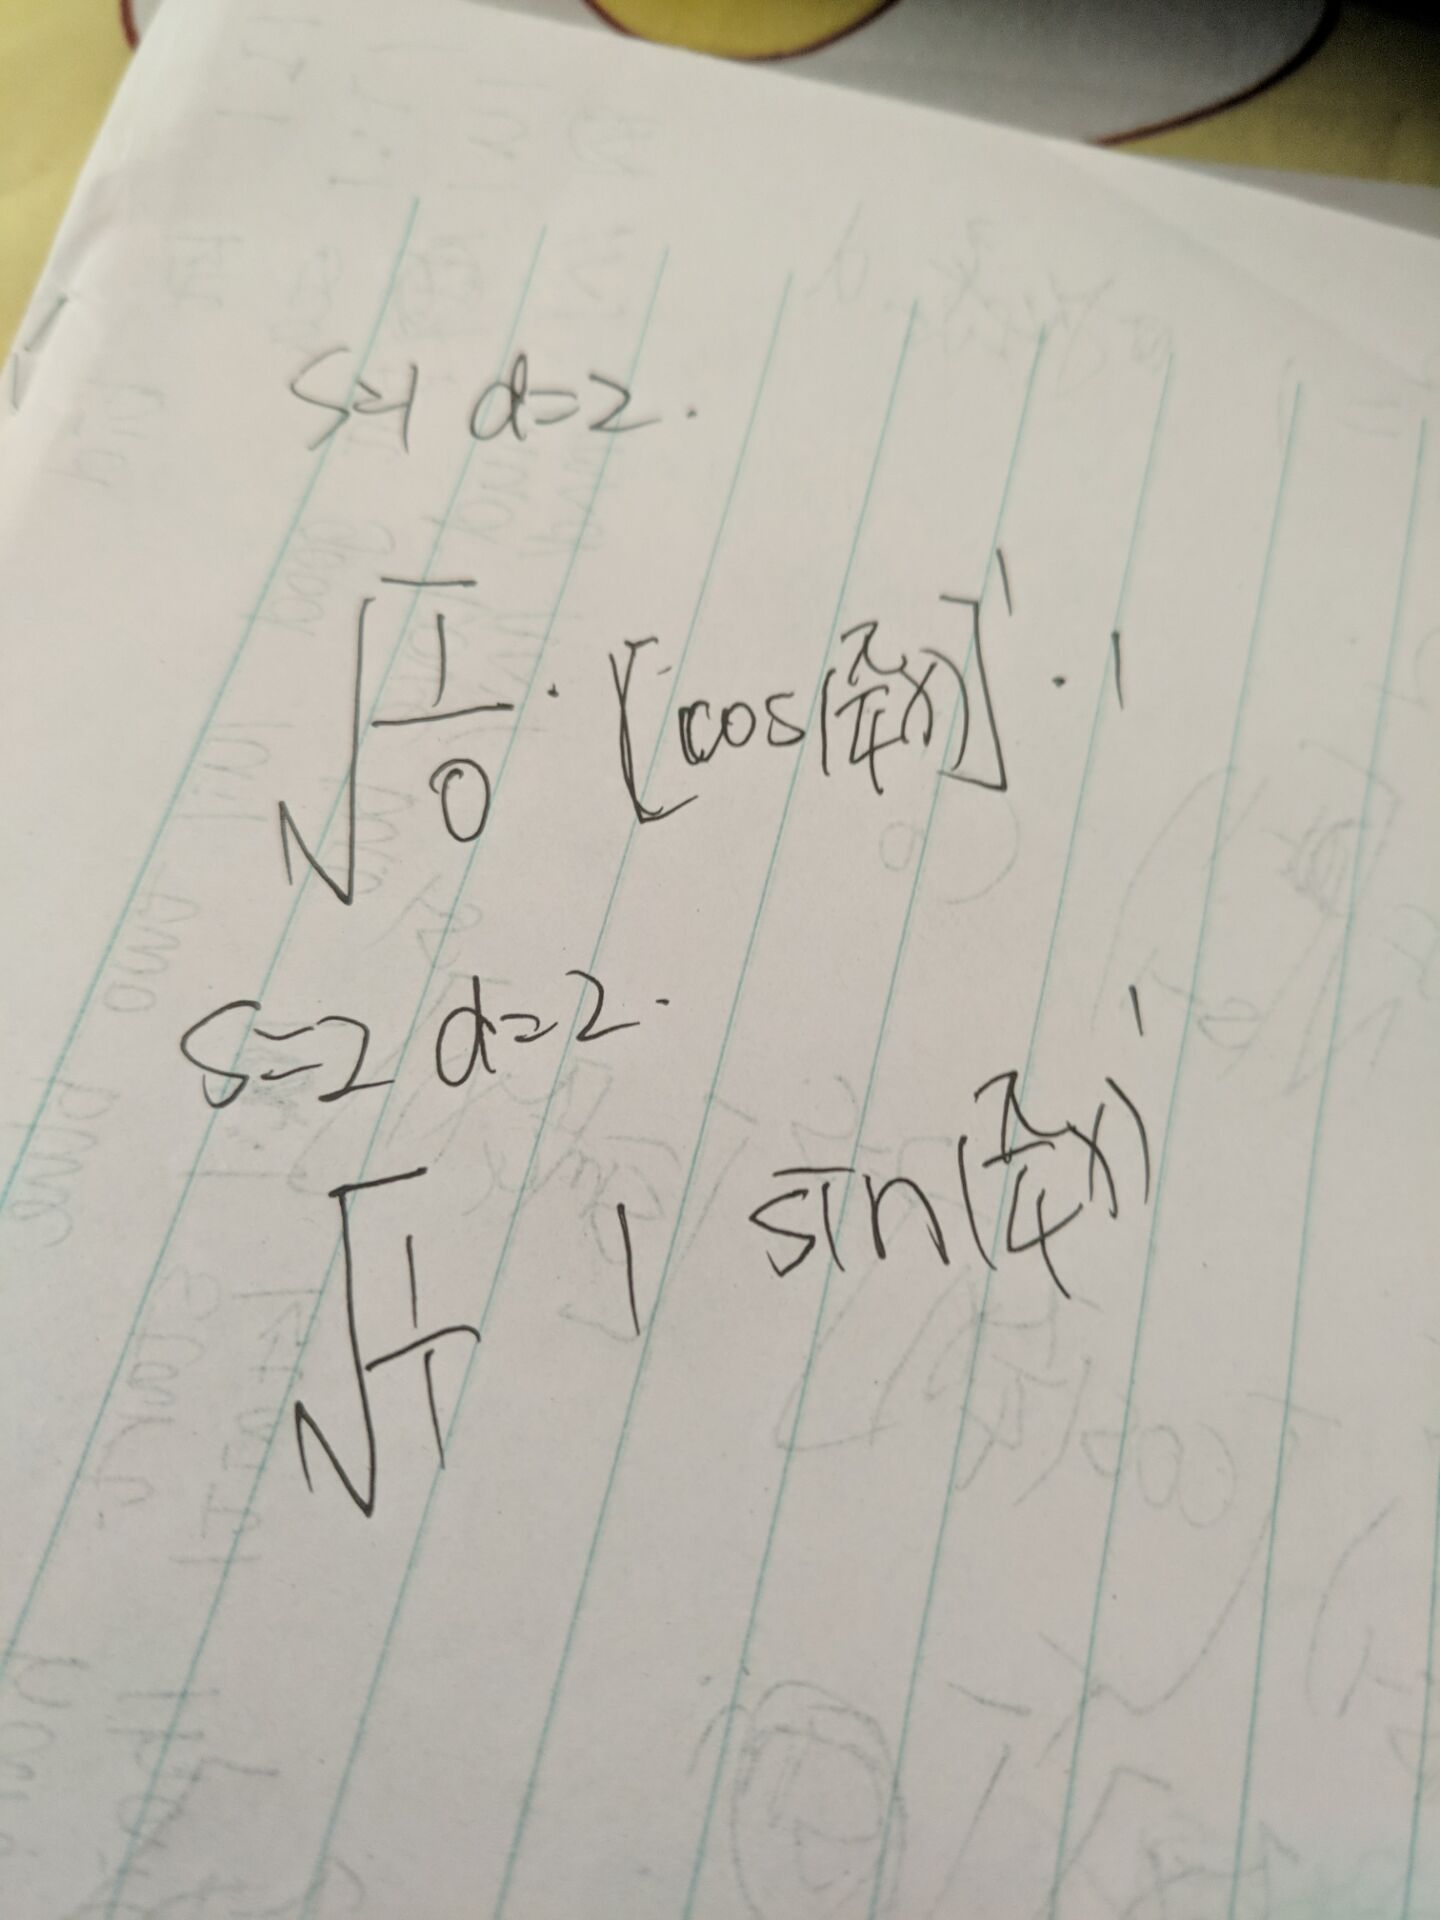 S=1 d=2.
√(1/0) · [cos(π/4 x)]^1 · 1
S=2 d=2.
√(1/1) 1 sin(π/4 x)^1